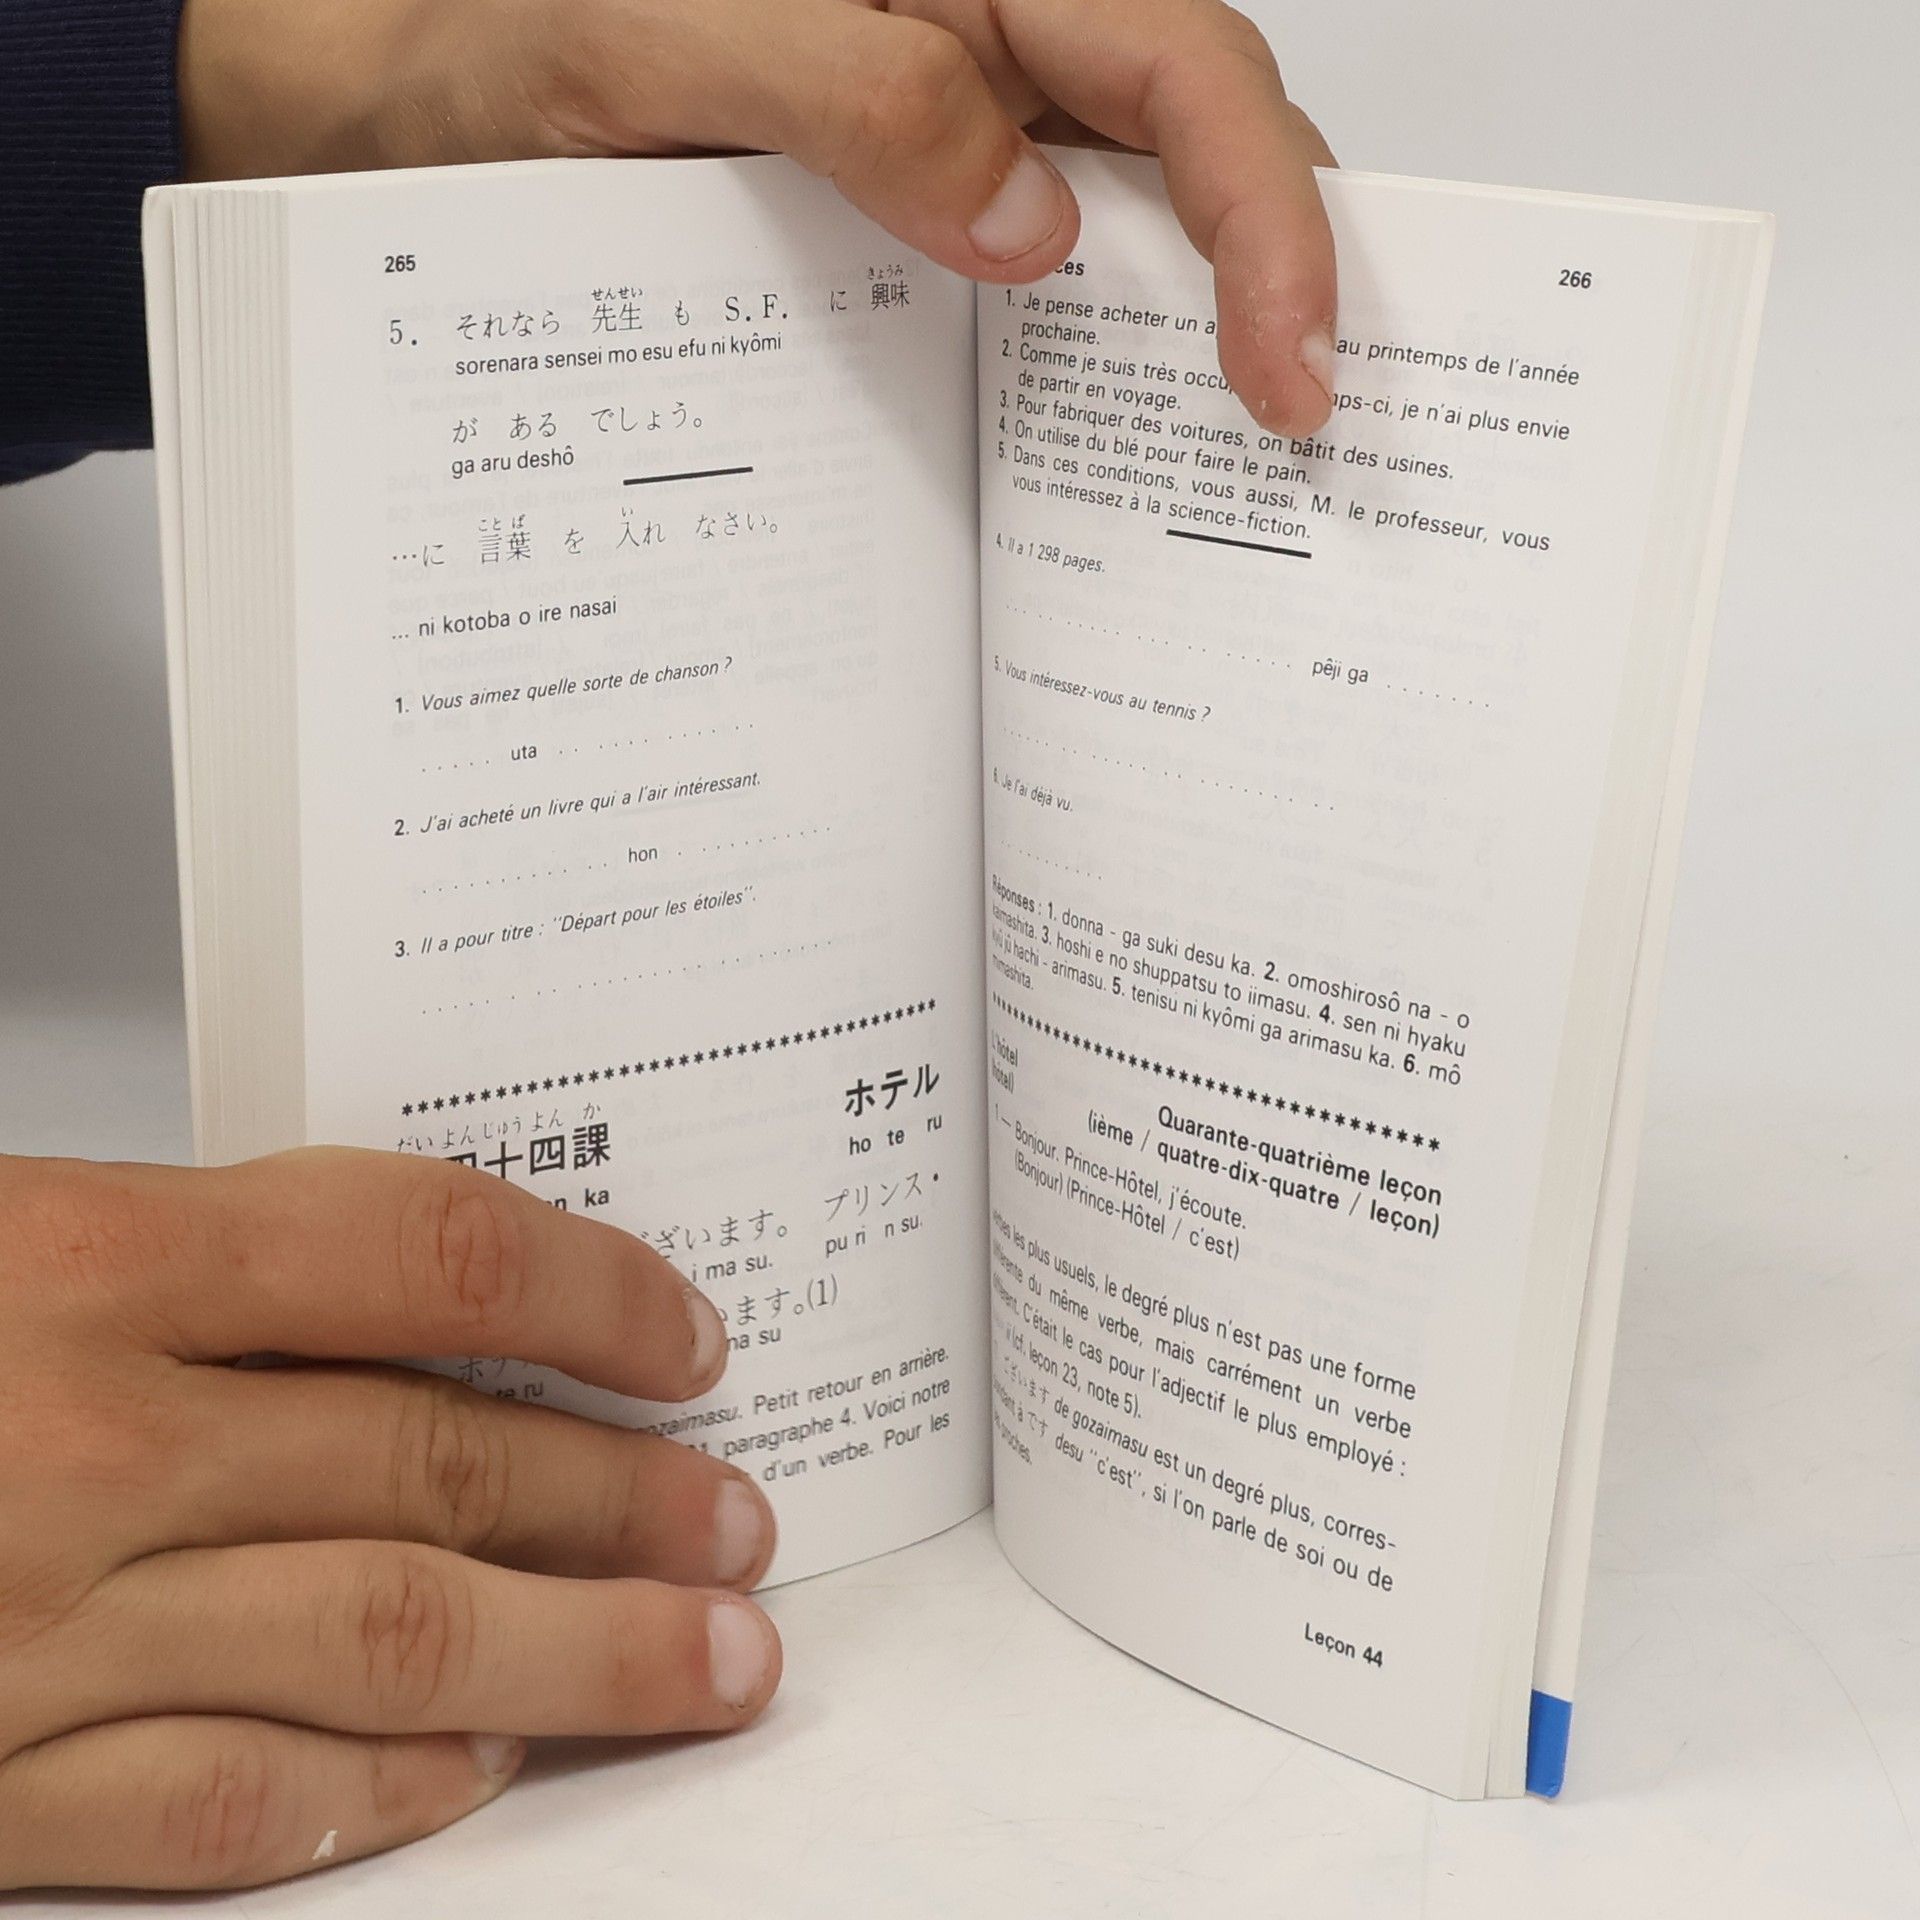 265
せんせい きょうみ
5. それなら 先生 も S.F. に 興味
sorenara sensei mo esu efu ni kyômi
が ある でしょう。
ga aru deshô
ことば い
…に 言葉 を 入れ なさい。
... ni kotoba o ire nasai
1. Vous aimez quelle sorte de chanson ?
. . . . . uta . . . . . . . . . . . .
2. J'ai acheté un livre qui a l'air intéressant.
. . . . . . . . . . . . hon . . . . . . . . . . .
3. Il a pour titre : ''Départ pour les étoiles''.
. . . . . . . . . . . . . . . . . . . . . . . .
************************************
だい よん じゅう よん か
十四課 ホテル
ka ho te ru
ざいます。 プリンス・
i ma su. pu ri n su.
います。(1)
ma su
te ru
gozaimasu. Petit retour en arrière.
paragraphe 4. Voici notre
d'un verbe. Pour les
266
1. Je pense acheter un a au printemps de l'année
prochaine.
2. Comme je suis très occu mps-ci, je n'ai plus envie
de partir en voyage.
3. Pour fabriquer des voitures, on bâtit des usines.
4. On utilise du blé pour faire le pain.
5. Dans ces conditions, vous aussi, M. le professeur, vous
vous intéressez à la science-fiction.
4. Il a 1 298 pages.
. . . . . . . . . . . . . . . . . . . pêji ga . . . . . . .
5. Vous intéressez-vous au tennis ?
. . . . . . . . . . . . . . . . . . . . . . . .
6. Je l'ai déjà vu.
. . . . . . . . . .
Réponses : 1. donna - ga suki desu ka. 2. omoshirosô na - o
kaimashita. 3. hoshi e no shuppatsu to iimasu. 4. sen ni hyaku
kyû jû hachi - arimasu. 5. tenisu ni kyômi ga arimasu ka. 6. mô
mimashita.
************************************
Quarante-quatrième leçon
(ième / quatre-dix-quatre / leçon)
L'hôtel
(hôtel)
1 — Bonjour. Prince-Hôtel, j'écoute.
(Bonjour) (Prince-Hôtel / c'est)
verbes les plus usuels, le degré plus n'est pas une forme
différente du même verbe, mais carrément un verbe
différent. C'était le cas pour l'adjectif le plus employé :
ii (cf. leçon 23, note 5).
ございます de gozaimasu est un degré plus, corres-
pondant à です desu ''c'est'', si l'on parle de soi ou de
proches.
Leçon 44